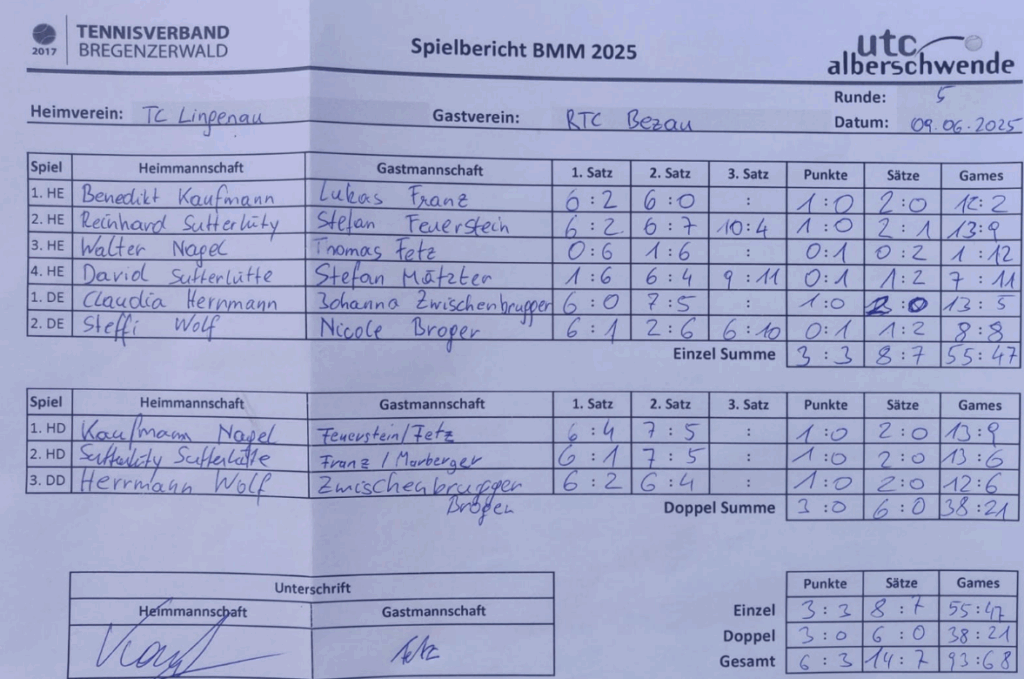 2017 TENNISVERBAND BREGENZERWALD
Spielbericht BMM 2025
utc alberschwende
Heimverein: TC Lingenau Gastverein: RTC Bezau
Runde: 5
Datum: 09.06.2025
Spiel Heimmannschaft Gastmannschaft 1. Satz 2. Satz 3. Satz Punkte Sätze Games
1. HE Benedikt Kaufmann Lukas Franz 6:2 6:0 : 1:0 2:0 12:2
2. HE Reinhard Sutterlüty Stefan Feuerstein 6:2 6:7 10:4 1:0 2:1 13:9
3. HE Walter Nagel Thomas Fetz 0:6 1:6 : 0:1 0:2 1:12
4. HE David Sutterlütte Stefan Mätzler 1:6 6:4 9:11 0:1 1:2 7:11
1. DE Claudia Herrmann Johanna Zwischenbrugger 6:0 7:5 : 1:0 2:0 13:5
2. DE Steffi Wolf Nicole Broger 6:1 2:6 6:10 0:1 1:2 8:8
Einzel Summe 3:3 8:7 55:47
Spiel Heimmannschaft Gastmannschaft 1. Satz 2. Satz 3. Satz Punkte Sätze Games
1. HD Kaufmann Nagel Feuerstein/Fetz 6:4 7:5 : 1:0 2:0 13:9
2. HD Sutterlüty Sutterlütte Franz / Marberger 6:1 7:5 : 1:0 2:0 13:6
3. DD Herrmann Wolf Zwischenbrugger 6:2 6:4 : 1:0 2:0 12:6
Broger Doppel Summe 3:0 6:0 38:21
Unterschrift
Heimmannschaft Gastmannschaft
Fetz
Punkte Sätze Games
Einzel 3:3 8:7 55:47
Doppel 3:0 6:0 38:21
Gesamt 6:3 14:7 93:68